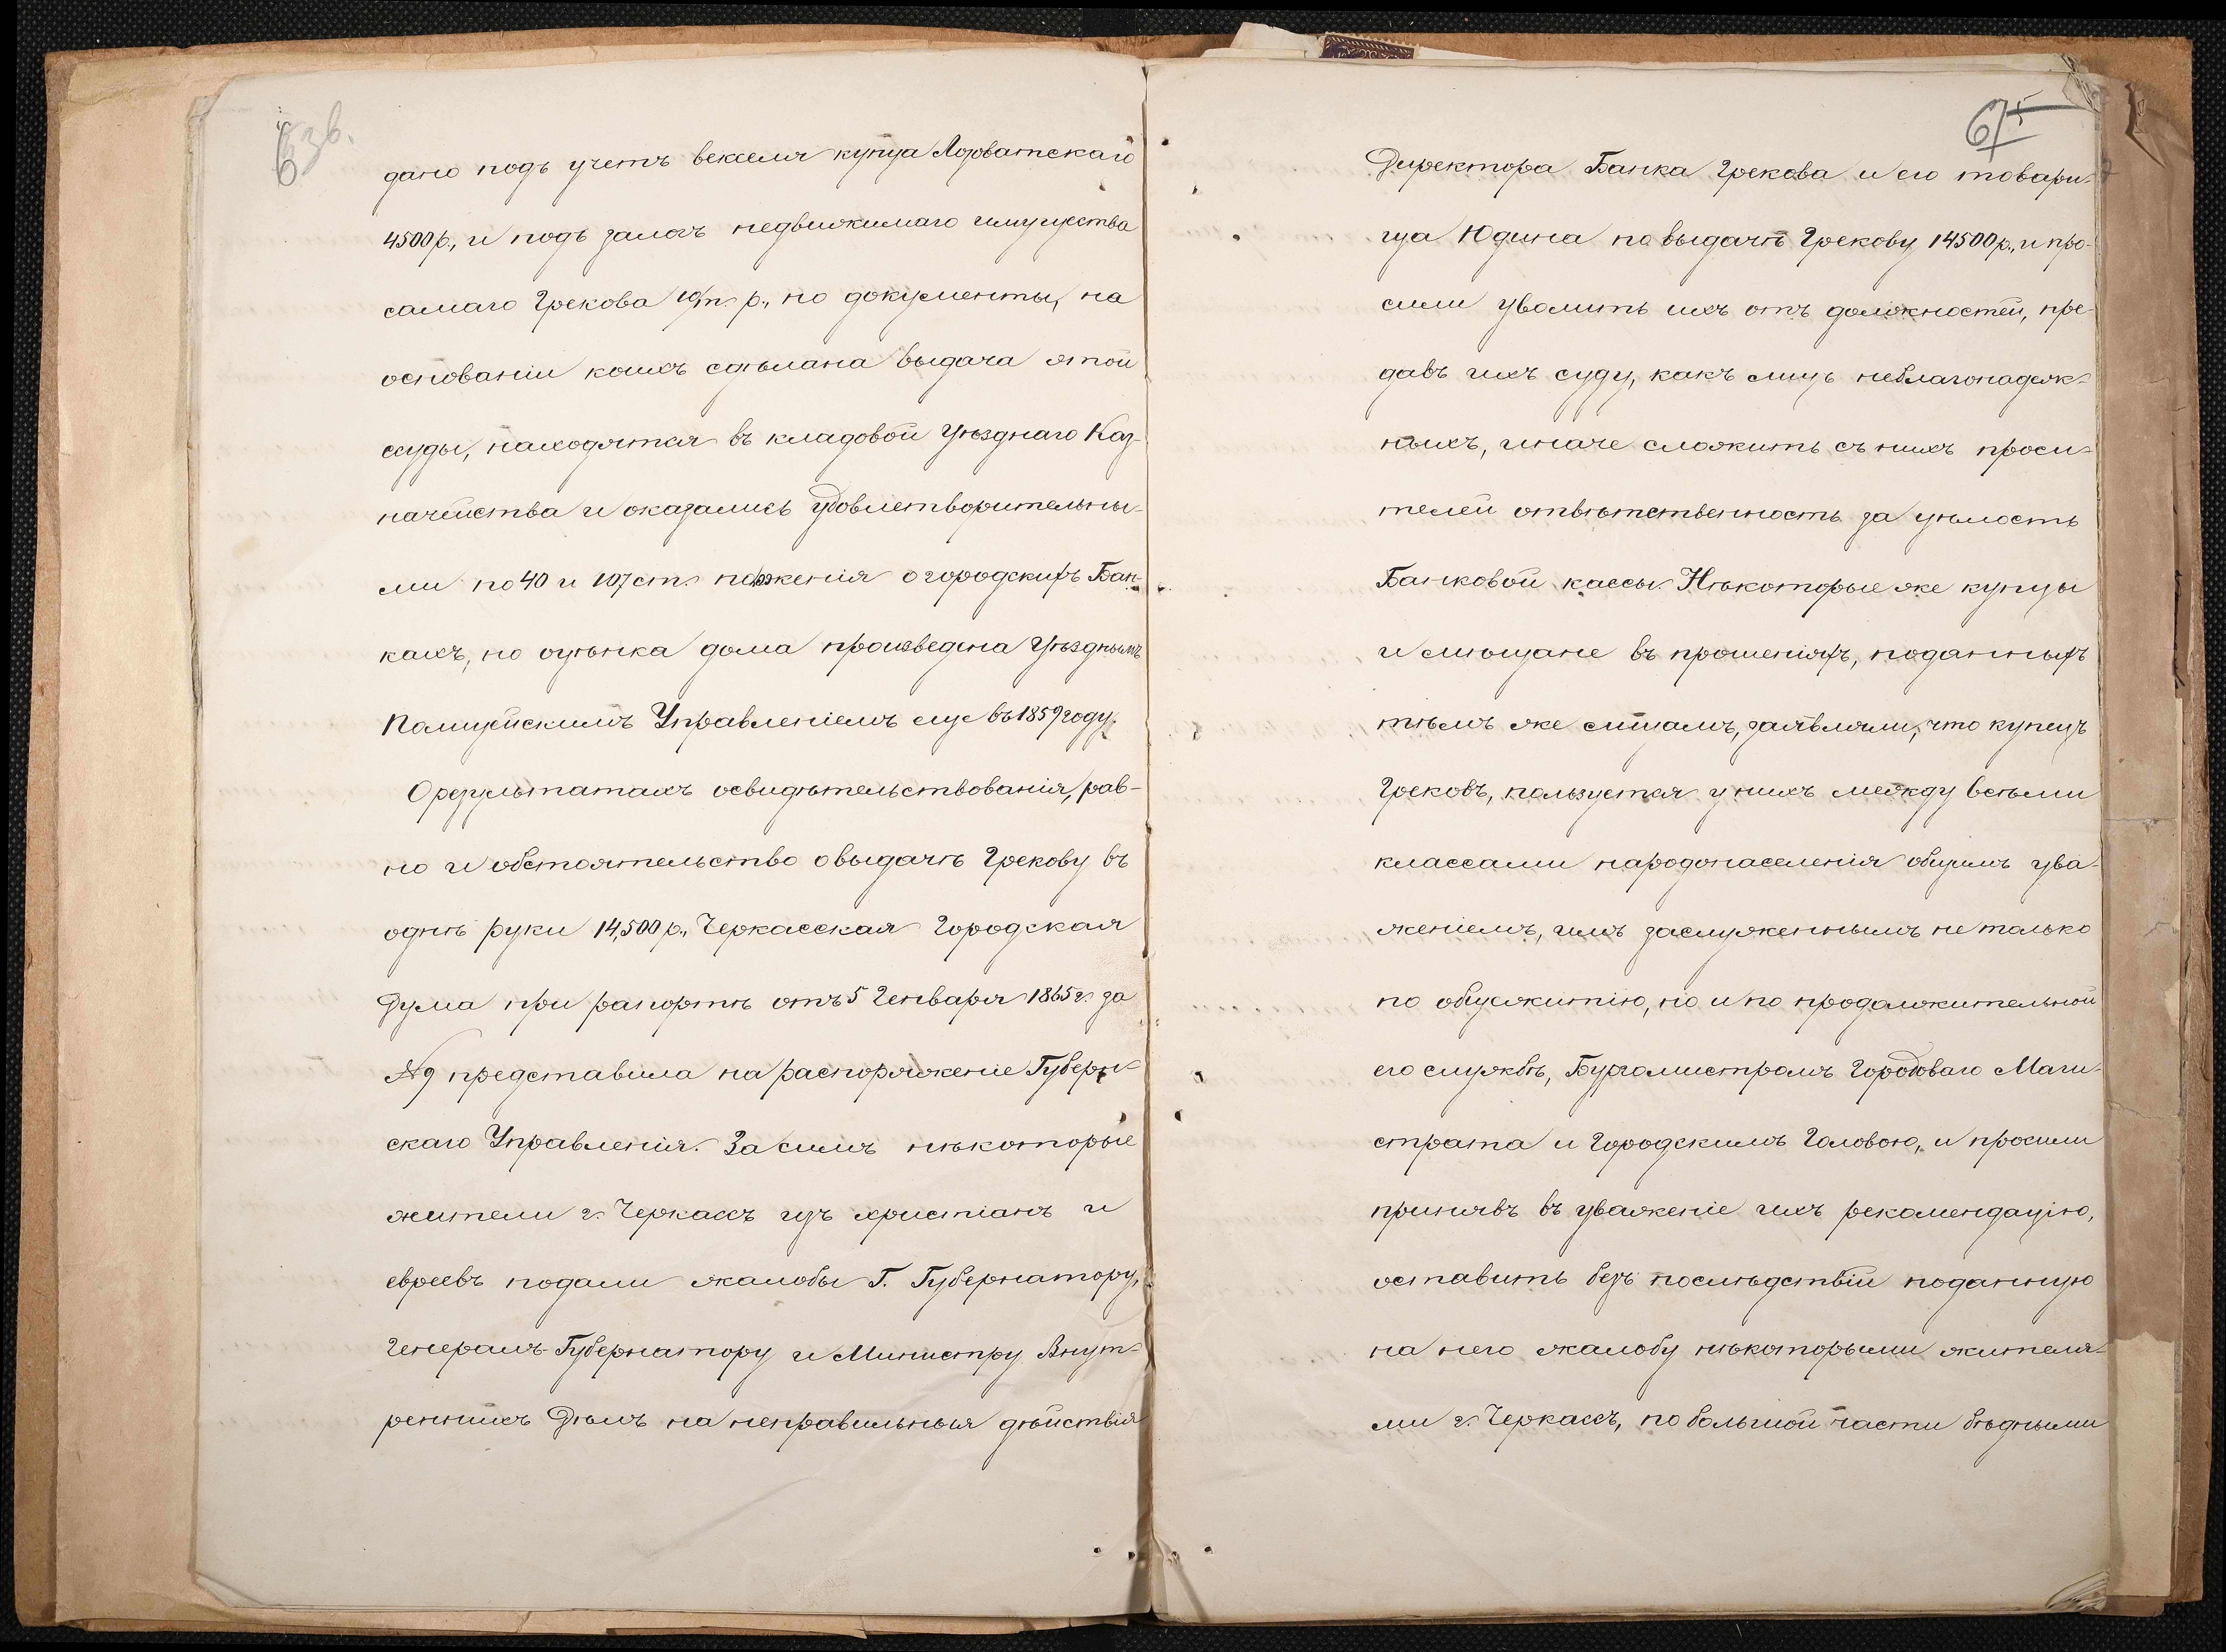 дано подъ учетъ векселя купца Лозоватскаго
4500 р., и подъ залогъ недвижимаго имущества
самаго Грекова 10/т. р., но документы, на
основаніи коихъ сдѣлана выдача этой
ссуды, находятся въ кладовой Уѣзднаго Каз-
начейства и оказались удовлетворительны-
ми по 40 и 107 ст. положенія о городскихъ Бан-
кахъ, но оцѣнка дома произведена Уѣзднымъ
Полицейскимъ Управленіемъ еще въ 1859 году.
О результатахъ освидѣтельствованія, рав-
но и обстоятельство о выдачѣ Грекову въ
однѣ руки 14,500 р., Черкасская Городская
Дума при рапортѣ отъ 5 Генваря 1865 г. за
№ 9 представила на распоряженіе Губерн-
скаго Управленія. За симъ нѣкоторые
жители г. Черкассъ изъ христіанъ и
евреевъ подали жалобы Г. Губернатору,
Генералъ-Губернатору и Министру Внут-
реннихъ Дѣлъ на неправильныя дѣйствія
67
Директора Банка Грекова и его товари-
ща Юдина по выдачѣ Грекову 14500 р., и про-
сили уволить ихъ отъ должностей, пре-
давъ ихъ суду, какъ лицъ неблагонадеж-
ныхъ, иначе сложить съ нихъ проси-
телей отвѣтственность за цѣлость
Банковой кассы. Нѣкоторые же купцы
и мѣщане въ прошеніяхъ, поданныхъ
тѣмъ же лицамъ, заявляли, что купецъ
Грековъ, пользуется у нихъ между всѣми
классами народонаселенія общимъ ува-
женіемъ, имъ заслуженнымъ не только
по общежитію, но и по продолжительной
его службѣ, Бургомистромъ Городоваго Маги-
страта и Городскимъ Головою, и просили
принявъ въ уваженіе ихъ рекомендацію,
оставить безъ послѣдствій поданную
на него жалобу нѣкоторыми жителя-
ми г. Черкассъ, по большой части бѣдными